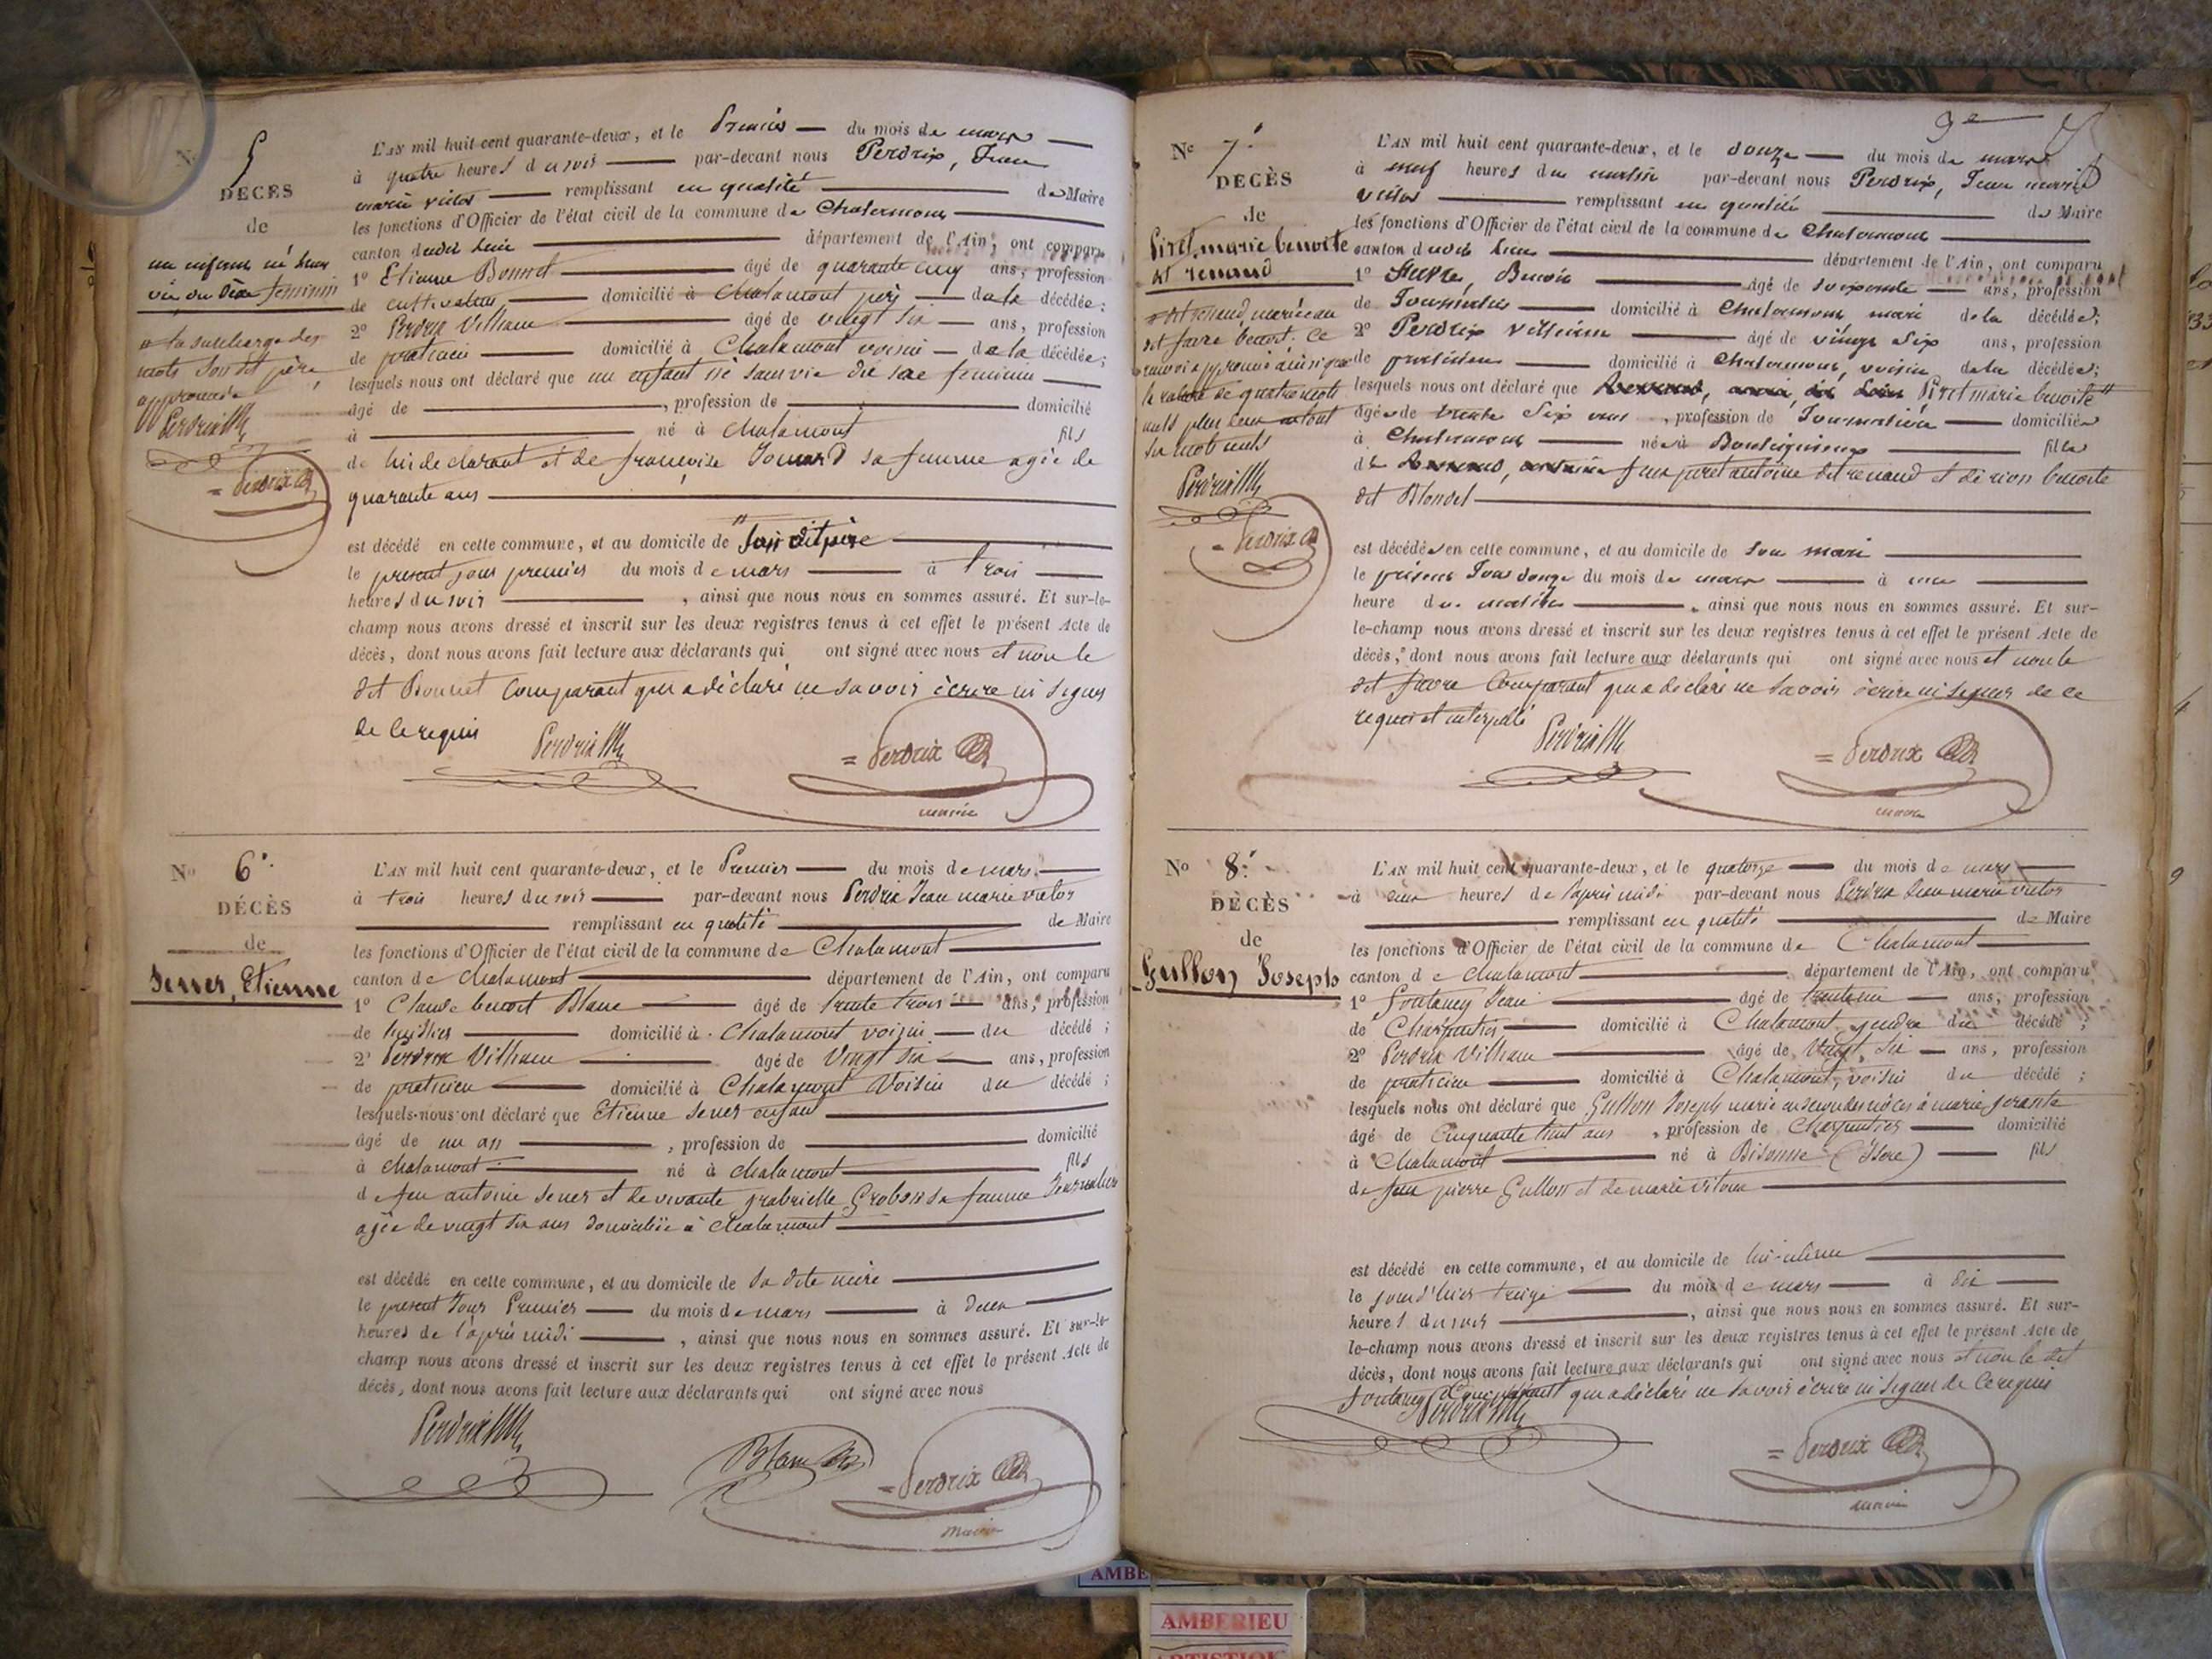 No 5
DÉCÈS
de
un enfant né sans
vie du sexe feminin
la surcharge des
mots son dit père
approuvée
Perdrix
= Perdrix
L'AN mil huit cent quarante-deux, et le Premier du mois de mars
à quatre heures du soir par-devant nous Perdrix, Jean
marie victor remplissant en qualité de Maire
les fonctions d'Officier de l'état civil de la commune de Chalamont
canton dudit lieu département de l'Ain, ont comparu
1º Etienne Bonnet âgé de quarante cinq ans, profession
de cultivateur, domicilié à Chalamont père de la décédée;
2º Perdrix Villiame âgé de vingt six ans, profession
de praticien domicilié à Chalamont voisin de la décédée;
lesquels nous ont déclaré que un enfant né sans vie du sexe feminin
âgé de , profession de domicilié
à né à Chalamont fils
de lui declarant et de françoise sa femme agée de
quarante ans
est décédé en cette commune, et au domicile de son dit père
le present jour premier du mois de mars à trois
heures du soir , ainsi que nous nous en sommes assuré. Et sur-le-
champ nous avons dressé et inscrit sur les deux registres tenus à cet effet le présent Acte de
décès, dont nous avons fait lecture aux déclarants qui ont signé avec nous et non le
dit Bonnet Comparant qui a déclaré ne savoir écrire ni signer
de ce requis
Perdrix
= Perdrix
maire
No 6.
DÉCÈS
de
Sener, Etienne
L'AN mil huit cent quarante-deux, et le Premier du mois de mars
à trois heures du soir par-devant nous Perdrix Jean marie victor
remplissant en qualité de Maire
les fonctions d'Officier de l'état civil de la commune de Chalamont
canton de Chalamont département de l'Ain, ont comparu
1º Claude benoit Blanc âgé de trente trois ans, profession
de huissier domicilié à Chalamont voisin du décédé;
2º Perdrix Villiame âgé de Vingt six ans, profession
de praticien domicilié à Chalamont Voisin du décédé;
lesquels nous ont déclaré que Etienne Sener enfant
âgé de un an , profession de domicilié
à Chalamont né à Chalamont fils
de feu antoine Sener et de vivante grabrielle Grobon sa femme Journalière
agée de vingt six ans domiciliée à Chalamont
est décédé en cette commune, et au domicile de sa dite mère
le present Jour Premier du mois de mars à deux
heures de l'après midi , ainsi que nous nous en sommes assuré. Et sur-le-
champ nous avons dressé et inscrit sur les deux registres tenus à cet effet le présent Acte de
décès, dont nous avons fait lecture aux déclarants qui ont signé avec nous
Perdrix
Blanc
= Perdrix
maire
9e
No 7.
DÉCÈS
de
Piret marie benoite
dit renaud
dit renaud, mariée au
dit favre benoit. Ce
renvoi approuvé ainsi que
la rature de quatre mots
nuls
six mots nuls
Perdrix
= Perdrix
L'AN mil huit cent quarante-deux, et le douze du mois de mars
à neuf heures du matin par-devant nous Perdrix, Jean marie
victor remplissant en qualité de Maire
les fonctions d'Officier de l'état civil de la commune de Chalamont
canton dudit lieu département de l'Ain, ont comparu
1º Favre, Benoit âgé de soixante ans, profession
de Journalier domicilié à Chalamont, mari de la décédée;
2º Perdrix Villiame âgé de vingt six ans, profession
de praticien domicilié à Chalamont, voisin de la décédée;
lesquels nous ont déclaré que Piret marie benoite
âgée de trente six ans , profession de Journalière domiciliée
à Chalamont née à Bouligneux fille
de feux piret antoine dit renaud et de benoite
dit Blondel
est décédée en cette commune, et au domicile de son mari
le présent Jour douze du mois de mars à une
heure du matin , ainsi que nous nous en sommes assuré. Et sur-
le-champ nous avons dressé et inscrit sur les deux registres tenus à cet effet le présent Acte de
décès, dont nous avons fait lecture aux déclarants qui ont signé avec nous et non le
dit favre Comparant qui a déclaré ne savoir écrire ni signer de ce
requis et interpellé
Perdrix
= Perdrix
maire
No 8.
DÉCÈS
de
Gullon Joseph
L'AN mil huit cent quarante-deux, et le quatorze du mois de mars
à heures de l'après midi par-devant nous Perdrix Jean marie victor
remplissant en qualité de Maire
les fonctions d'Officier de l'état civil de la commune de Chalamont
canton de Chalamont département de l'Ain, ont comparu
1º Fontaney Jean âgé de ans, profession
de Charpentier domicilié à Chalamont gendre du décédé;
2º Perdrix Villiame âgé de Vingt six ans, profession
de praticien domicilié à Chalamont, voisin du décédé;
lesquels nous ont déclaré que Gullon Joseph marié en secondes nôces à marie
âgé de Cinquante huit ans , profession de Charpentier domicilié
à Chalamont né à Bisonne (isere) fils
de feu pierre Gullon et de marie
est décédé en cette commune, et au domicile de lui-même
le jour d'hier treize du mois de mars à dix
heures du soir , ainsi que nous nous en sommes assuré. Et sur-
le-champ nous avons dressé et inscrit sur les deux registres tenus à cet effet le présent Acte de
décès, dont nous avons fait lecture aux déclarants qui ont signé avec nous et non le dit
fontaney Comparant qui a déclaré ne savoir écrire ni signer de ce requis
Perdrix
= Perdrix
maire
AMBE
AMBERIEU